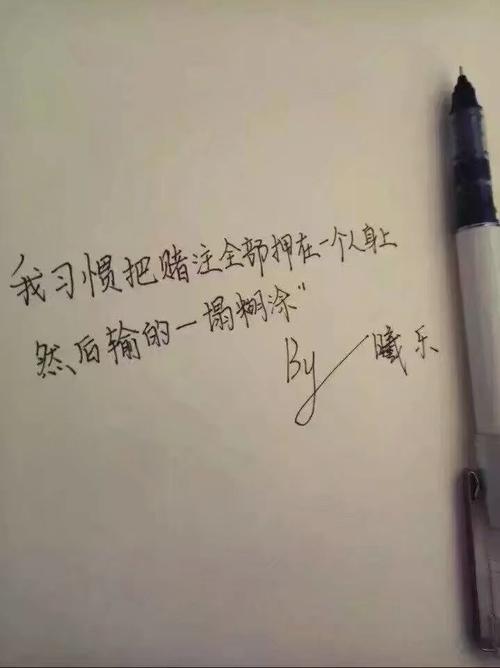 “我习惯把赌注全部押在一个人身上
然后输的一塌糊涂”
By 曦乐